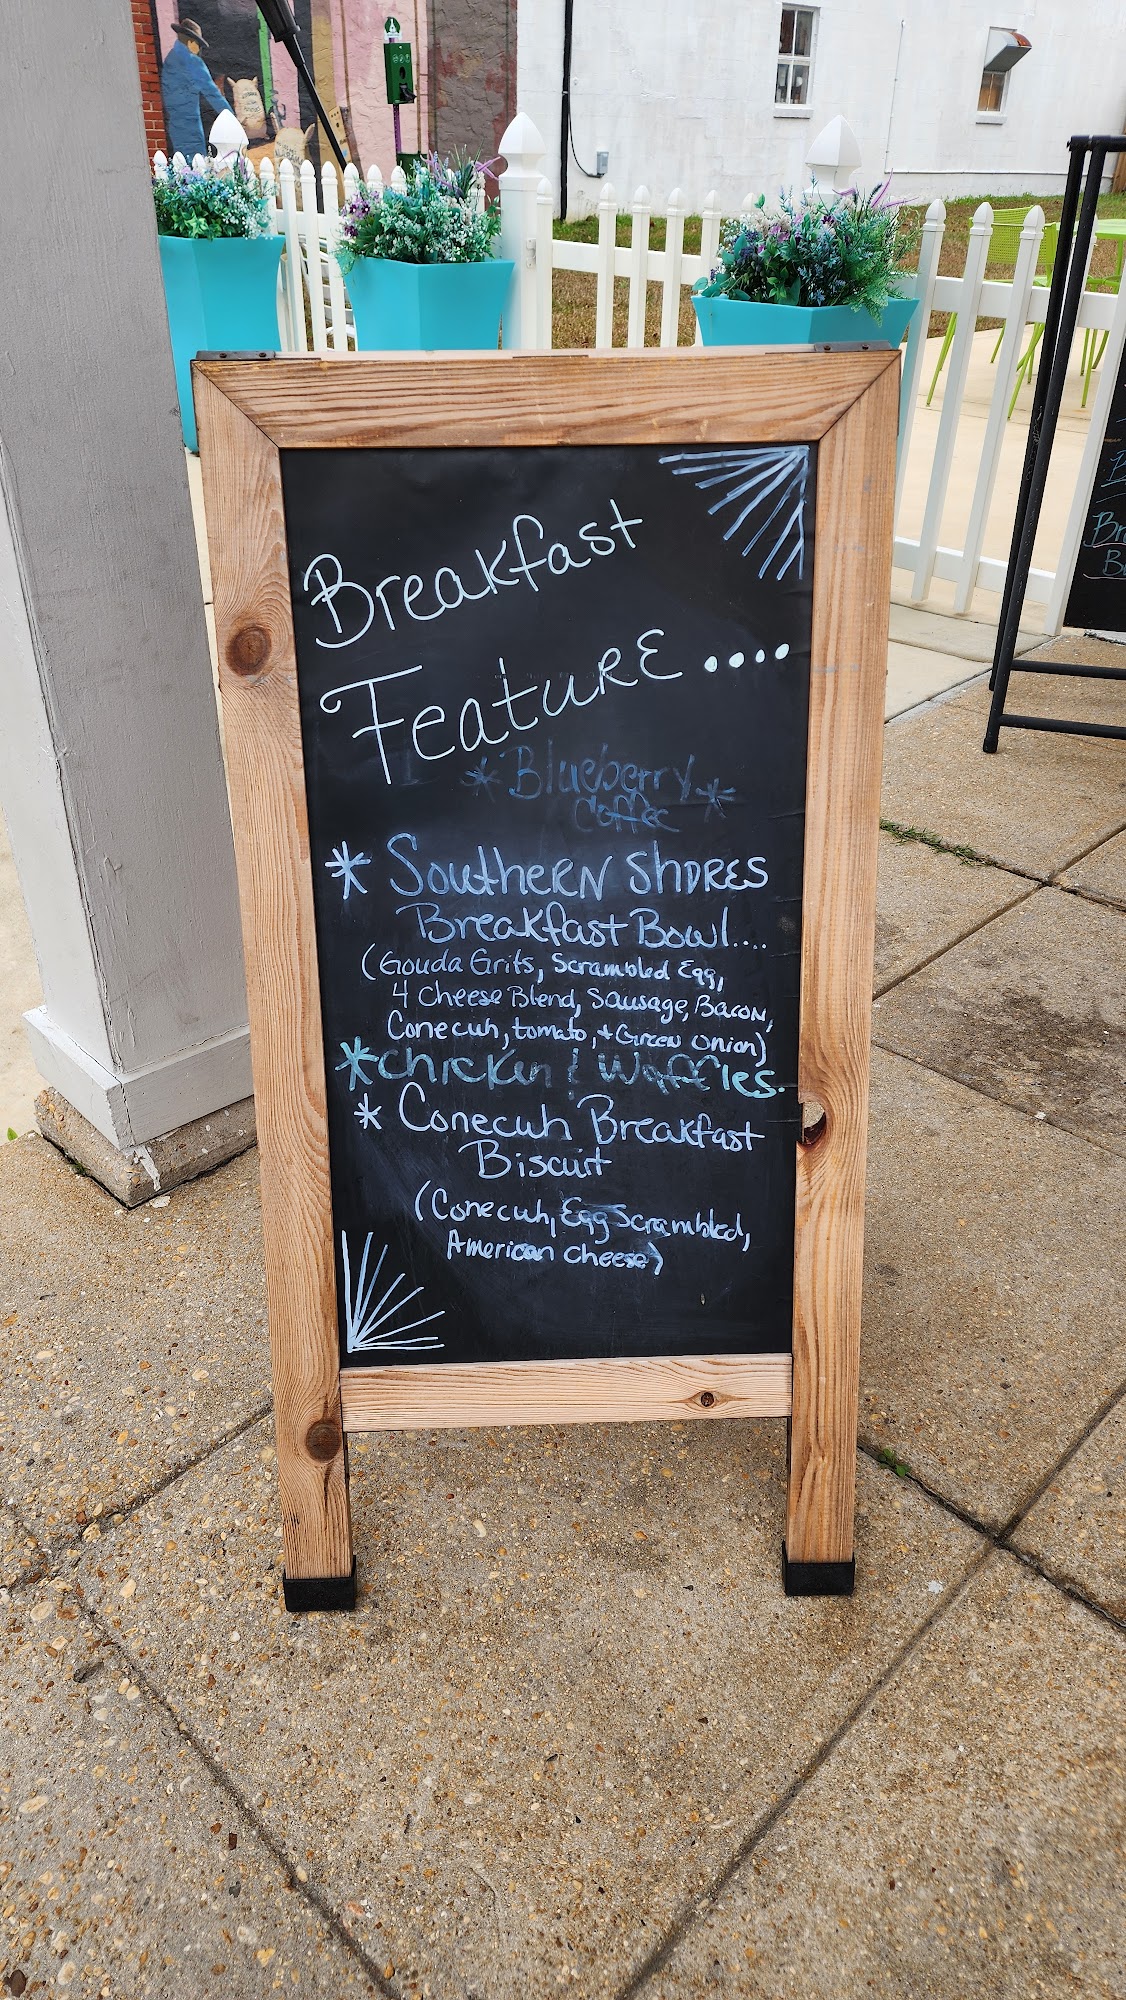 Breakfast
Feature....
* Blueberry *
Coffee
* Southern Shores
Breakfast Bowl....
(Gouda Grits, Scrambled Egg,
4 Cheese Blend, Sausage, Bacon,
Conecuh, tomato, + Green Onion)
* Chicken & Waffles.
* Conecuh Breakfast
Biscuit
(Conecuh, Egg Scrambled,
American Cheese)